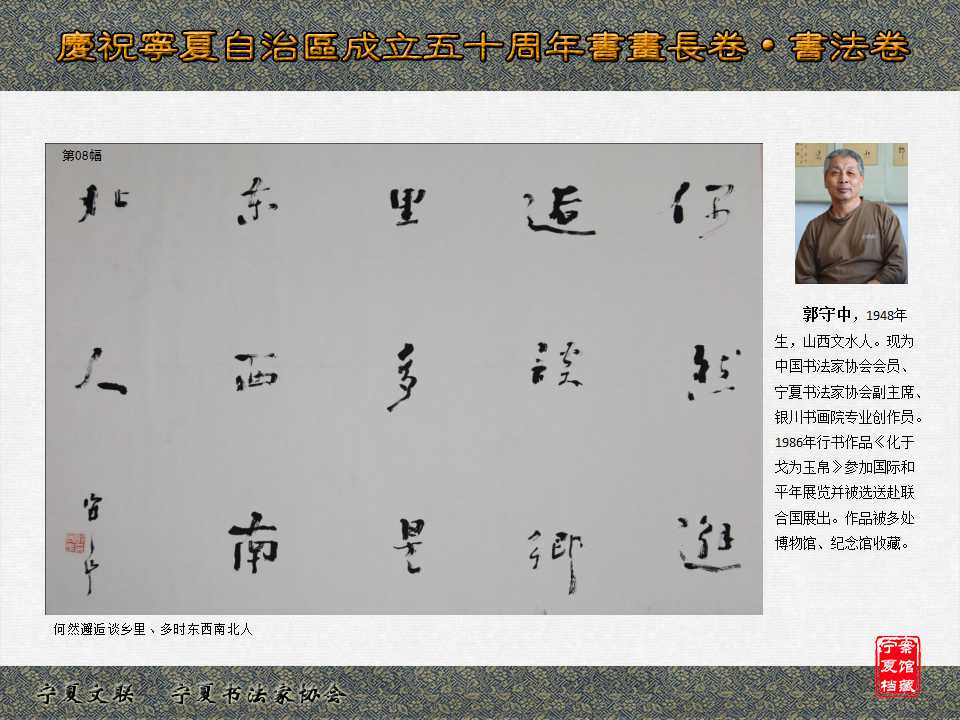 慶祝寧夏自治區成立五十周年書畫長卷·書法卷
第08幅
然邂
逅談鄉
里多是
东西南
北人
守中
何然邂逅谈乡里、多时东西南北人
郭守中，1948年
生，山西文水人。现为
中国书法家协会会员、
宁夏书法家协会副主席、
银川书画院专业创作员。
1986年行书作品《化干
戈为玉帛》参加国际和
平年展览并被选送赴联
合国展出。作品被多处
博物馆、纪念馆收藏。
宁夏档
案馆藏
宁夏文联 宁夏书法家协会